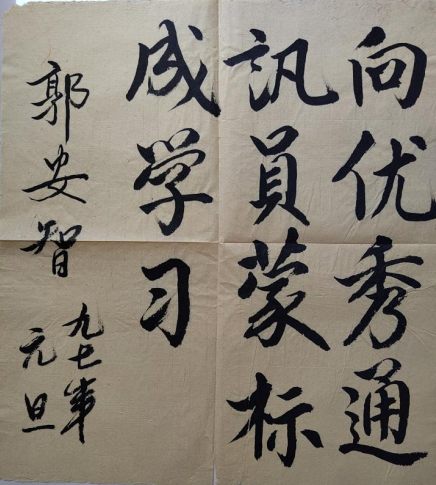 向优秀通
訊員蒙标
成学习
郭安智
九七年
元旦